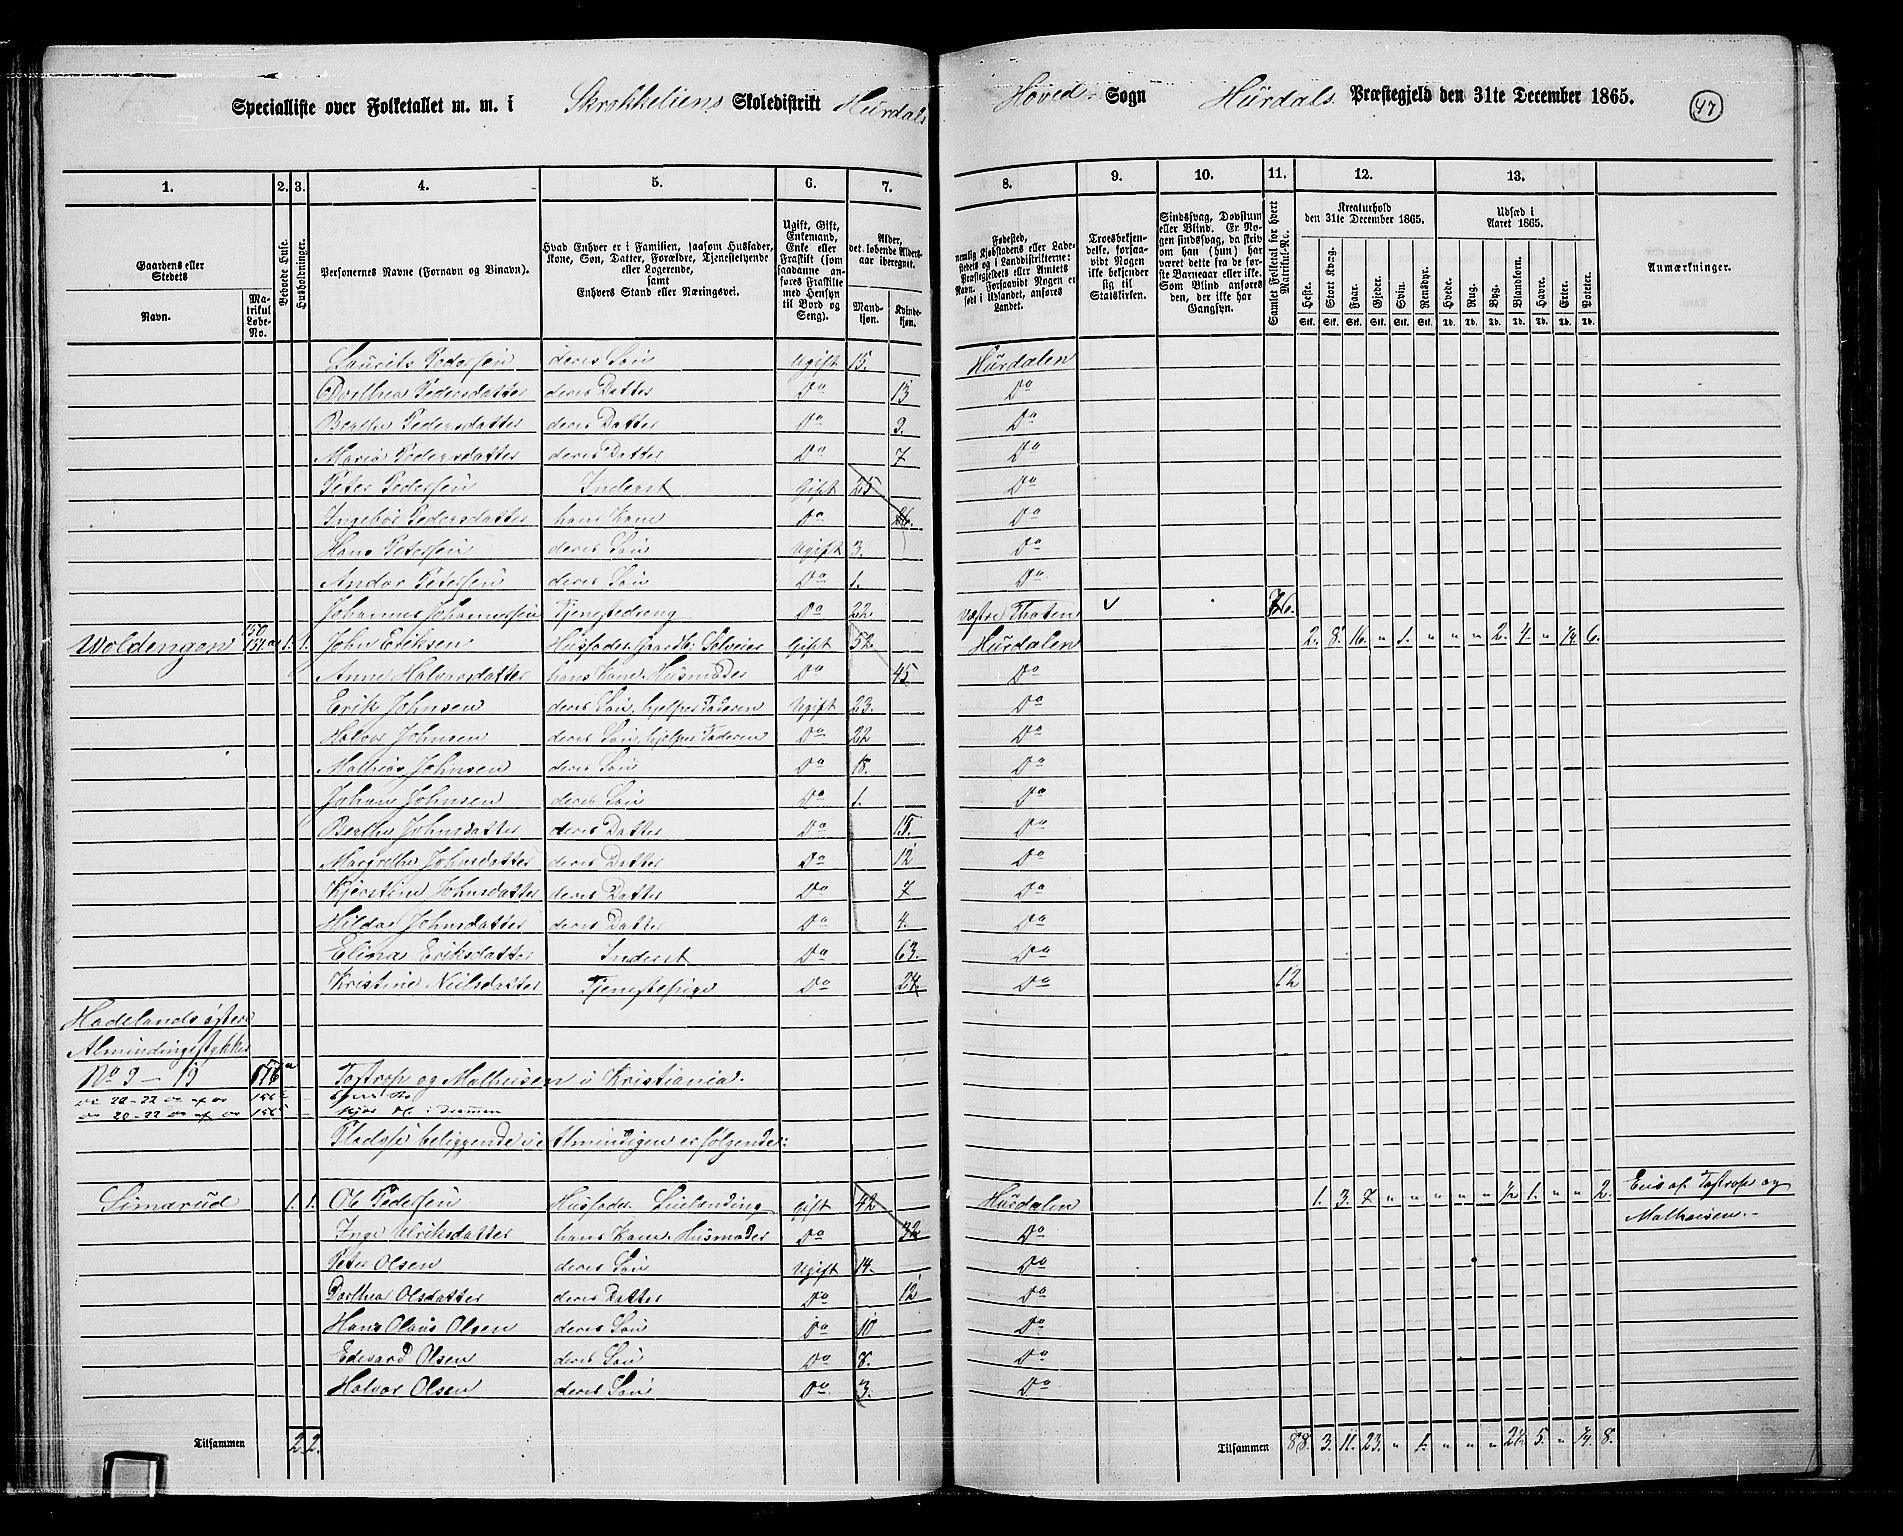 Specialliste over Folketallet m. m. i Skrokkeliens Skoledistrikt Hurdals Hoved Sogn Hurdals Præstegjeld den 31te December 1865. 47
1. 2. 3. 4. 5. 6. 7. 8. 9. 10. 11. 12. 13.
Gaardens eller Stedets
Navn. Matrikul Løbe-No.
Beboede Huse.
Husholdninger.
Personernes Navne (Fornavn og Binavn).
Hvad Enhver er i Familien, saasom Husfader, Kone, Søn, Datter, Forældre, Tjenestetyende eller Logerende, samt Enhvers Stand eller Næringsvei.
Ugift, Gift, Enkemand, Enke eller Fraskilt (som saadanne anføres Fraskilte med Hensyn til Bord og Seng).
Alder, det løbende Alders-aar iberegnet.
Mand-kjøn. Kvinde-kjøn.
Fødested, nemlig Kjøbstadens eller Ladestedets og i Landdistrikterne: Præstegjeldets eller Amtets Navn. Forsaavidt Nogen er født i Udlandet, anføres Landet.
Troesbekjendelse, forsaavidt Nogen ikke bekjender sig til Statskirken.
Sindssvag, Døvstum eller Blind. Er Nogen sindssvag, da skriv om han (hun) har været dette fra de første Barneaar eller ikke. Som Blind anføres den, der ikke har Gangsyn.
Samlet Folketal for hvert Matrikul-No.
Kreaturhold den 31te December 1865.
Heste. Stort Kvæg. Faar. Gjeder. Svin. Rensdyr.
Udsæd i Aaret 1865.
Hvede. Rug. Byg. Blandkorn. Havre. Erter. Poteter.
Stk. Stk. Stk. Stk. Stk. Stk. Td. Td. Td. Td. Td. Td. Td.
Anmærkninger.
Laurits Pedersen deres Søn Ugift 15. Hurdalen
Dorthea Pedersdatter deres Datter Do 13 Do
Berthe Pedersdatter deres Datter Do 9. Do
Maria Pedersdatter deres Datter Do 7 Do
Peter Pedersen Inderst Gift 25 Do
Ingebor Pedersdatter hans Kone Do 26. Do
Hans Petersen deres Søn Ugift 3. Do
Andor Petersen deres Søn Do 1. Do
Johannes Johannessen Tjenestedreng Do 22 vestre Thoten
Woldengen 1. 1. John Eriksen Husfader, Gaardbr. Selveier Gift 52 Hurdalen 2. 8. 16. " 1. " " " 2. 4. " 1/4 6.
Anne Halvorsdatter hans Kone. Husmoder Do 45 Do
Erik Johnsen deres Søn, hjelper Faderen Ugift 23. Do
Halvor Johnsen deres Søn, hjelper Faderen Do 22 Do
Mathias Johnsen deres Søn Do 18. Do
Johan Johnsen deres Søn Do 1. Do
Berthe Johnsdatter deres Datter Do 15. Do
Margrethe Johnsdatter deres Datter Do 12 Do
Kjerstine Johnsdatter deres Datter Do 7 Do
Hilda Johnsdatter deres Datter Do 4. Do
Elina Eriksdatter Inderst Do 63. Do
Kristine Nielsdatter Tjenestepige Do 24 Do 12
Hadelands østere
Almindingstykker
No 9 - 19 156 a Tostrop og Matheisen i Kristiania.
Pladse beliggende i Almindigen er følgende:
Simarud 1. 1. Ole Pedersen Husfader Gift 42 Hurdalen 1. 3. 7 " " " " " 1/2 1. " " 2. Eies af Tostrop og
Inge Ulriksdatter hans Kone. Husmoder Do 32 Do Matheisen.-
Peter Olsen deres Søn Ugift 14. Do
Dorthea Olsdatter deres Datter Do 12 Do
Hans Olaus Olsen deres Søn Do 10 Do
Edevard Olsen deres Søn Do 8. Do
Halvor Olsen deres Søn Do 3. Do
Tilsammen 2. 2. Tilsammen 3. 11. 23. " 1. " " " 2 1/2 5. " 1/4. 8.